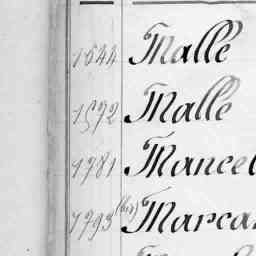 1644 Malle
1572 Malle
1781 Mancel
1793 (bis) Marca